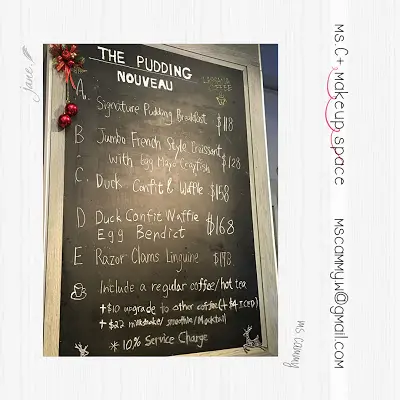 THE PUDDING
NOUVEAU
A. Signature Pudding Breakfast $118
B Jumbo French Style Croissant
with Egg Mayo Crayfish $128
C. Duck Confit & Waffle $158
D Duck Confit Waffle
Egg Bendict $168
E Razor Clams Linguine $148
Include a regular coffee/hot tea
+$10 upgrade to other coffee (+$4 ICED)
+$22 milkshake/ smoothie/Mocktail
* 10% Service Charge
jane.
ms.c+ makeup space
mscammyw@gmail.com
ms cammy